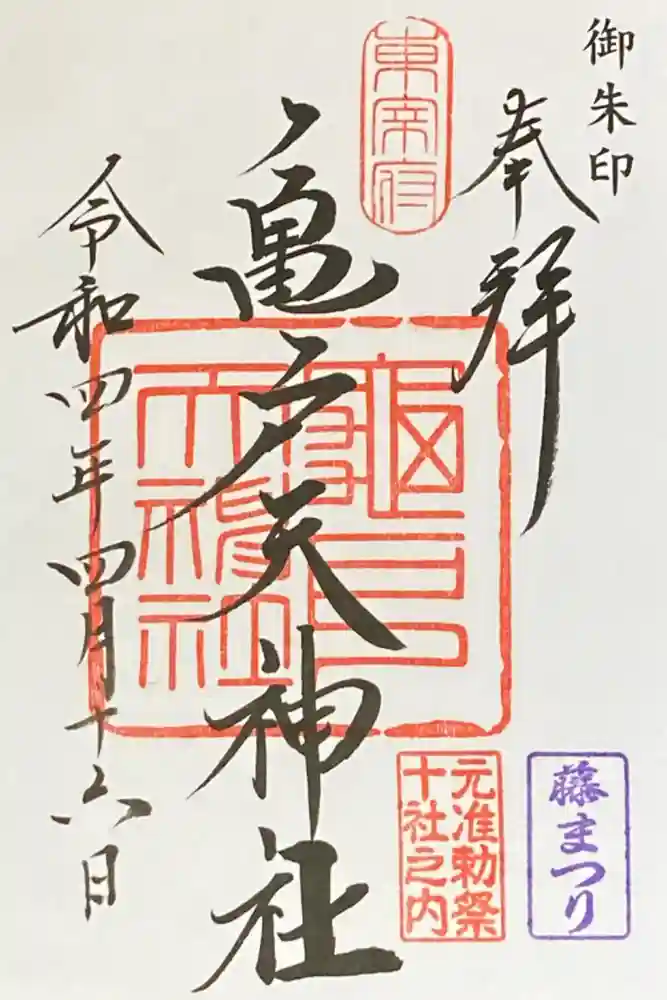 御朱印
奉拝
東宰府
亀戸天神社
令和四年四月十六日
元准勅祭
十社之内
藤まつり